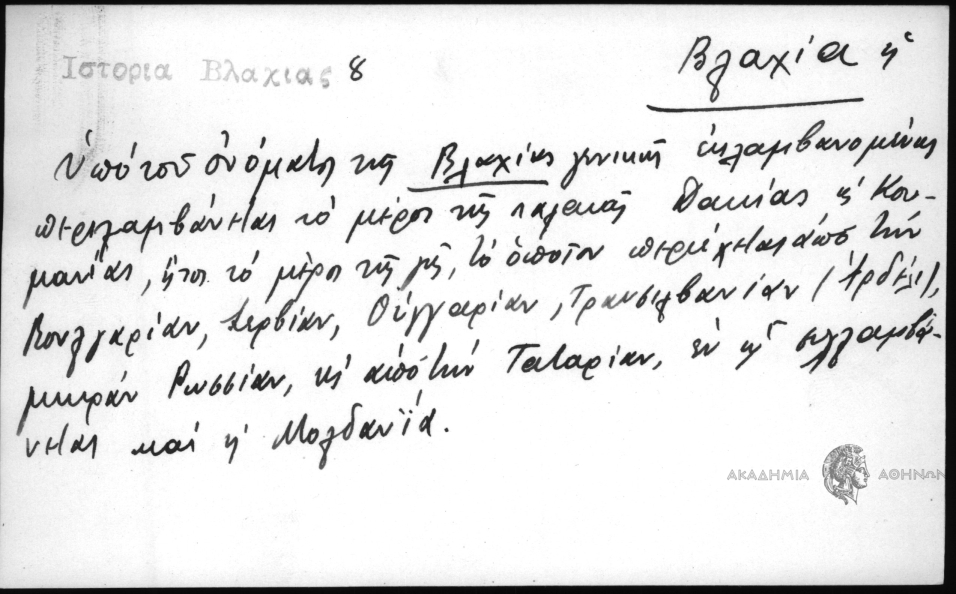 Ιστορια Βλαχιας 8
Βλαχία ἡ
Ὑπό τοῦ ὀνόματος τῆς Βλαχίας γενικῆς ἐκλαμβανομένης
περιλαμβάνεται τό μέρος τῆς παλαιᾶς Δακίας ἤ Κου-
μανίας, ἤτοι τό μέρος τῆς γῆς, τό ὁποῖον περιέχεται ἀπό τήν
Βουλγαρίαν, Σερβίαν, Οὐγγαρίαν, Τρανσιλβανίαν (Ἀρδέλι),
μικράν Ρωσσίαν, καί ἀπό τήν Ταταρίαν, ἐν ᾗ συλλαμβά-
νεται καί ἡ Μολδαυΐα.
ΑΚΑΔΗΜΙΑ ΑΘΗΝΩΝ